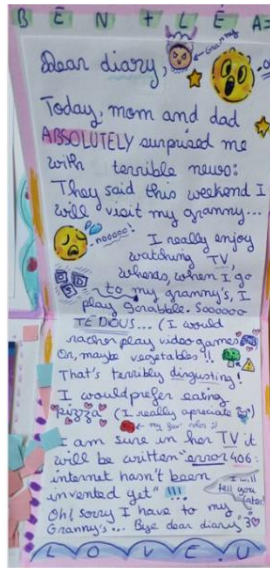 B E N T L E A
Dear diary,
Granny
Today, mom and dad
ABSOLUTELY surprised me
with terrible news:
They said this weekend I
will visit my granny...
nooooo!
I really enjoy
watching TV,
when I go
to my granny's, I
play scrabble. Sooooo
TEDIOUS... (I would
racher play videogames
Or, maybe vegetables !!
That's terribly disgusting!
I would prefer eating
puzza (I really apreciate it)
I am sure in her TV it
will be written "error 406:
internet hasn't been
invented yet" !!!
I will
tell you
later!
Oh! sorry I have to my
Granny's... Bye dear diary"
L O V E U